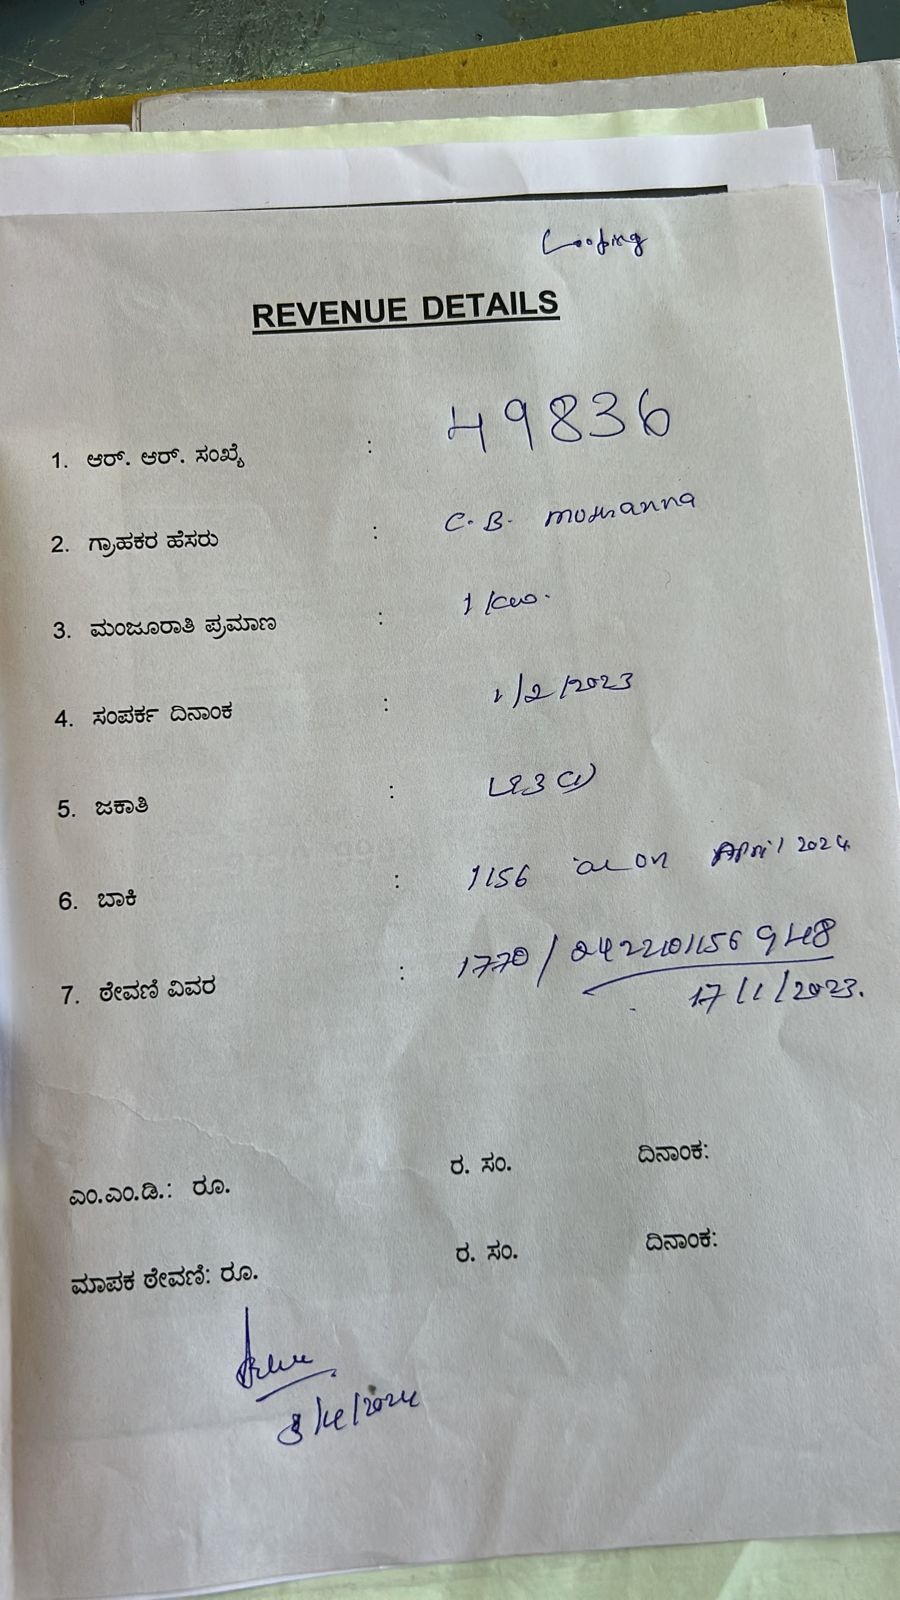 Looping
REVENUE DETAILS
1. ಆರ್. ಆರ್. ಸಂಖ್ಯೆ : 49836
2. ಗ್ರಾಹಕರ ಹೆಸರು : C. B. Muthanna
3. ಮಂಜೂರಾತಿ ಪ್ರಮಾಣ : 1 kw.
4. ಸಂಪರ್ಕ ದಿನಾಂಕ : 1/2/2023
5. ಜಕಾತಿ :
6. ಬಾಕಿ : 1156 as on April 2024
7. ಠೇವಣಿ ವಿವರ : 1770 /
17/1/2023.
ಎಂ.ಎಂ.ಡಿ.: ರೂ. ರ. ಸಂ. ದಿನಾಂಕ:
ಮಾಪಕ ಠೇವಣಿ: ರೂ. ರ. ಸಂ. ದಿನಾಂಕ:
8/4/2024